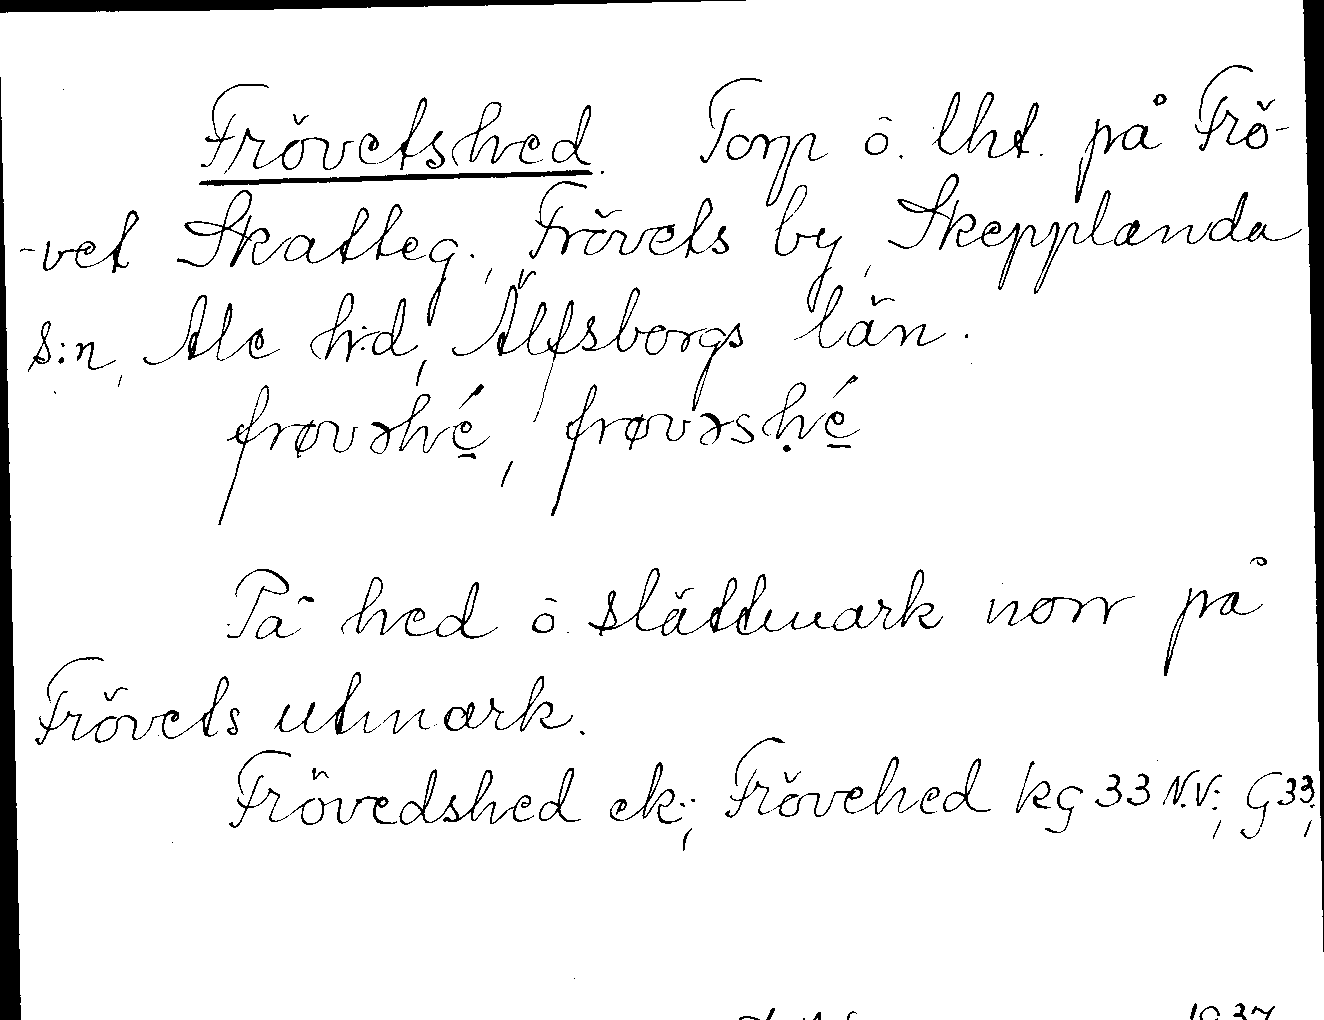 Frövetshed. Torp o. lht. på Frö-
-vet Skatteg., Frövets by, Skepplanda
s:n, Ale h:d, Älfsborgs län.
frøvəhé, frøvəsḥé
På hed o. slättmark norr på
Frövets utmark.
Frövedshed ek.; Frövehed kg 33 N.V.; G 33;
1937